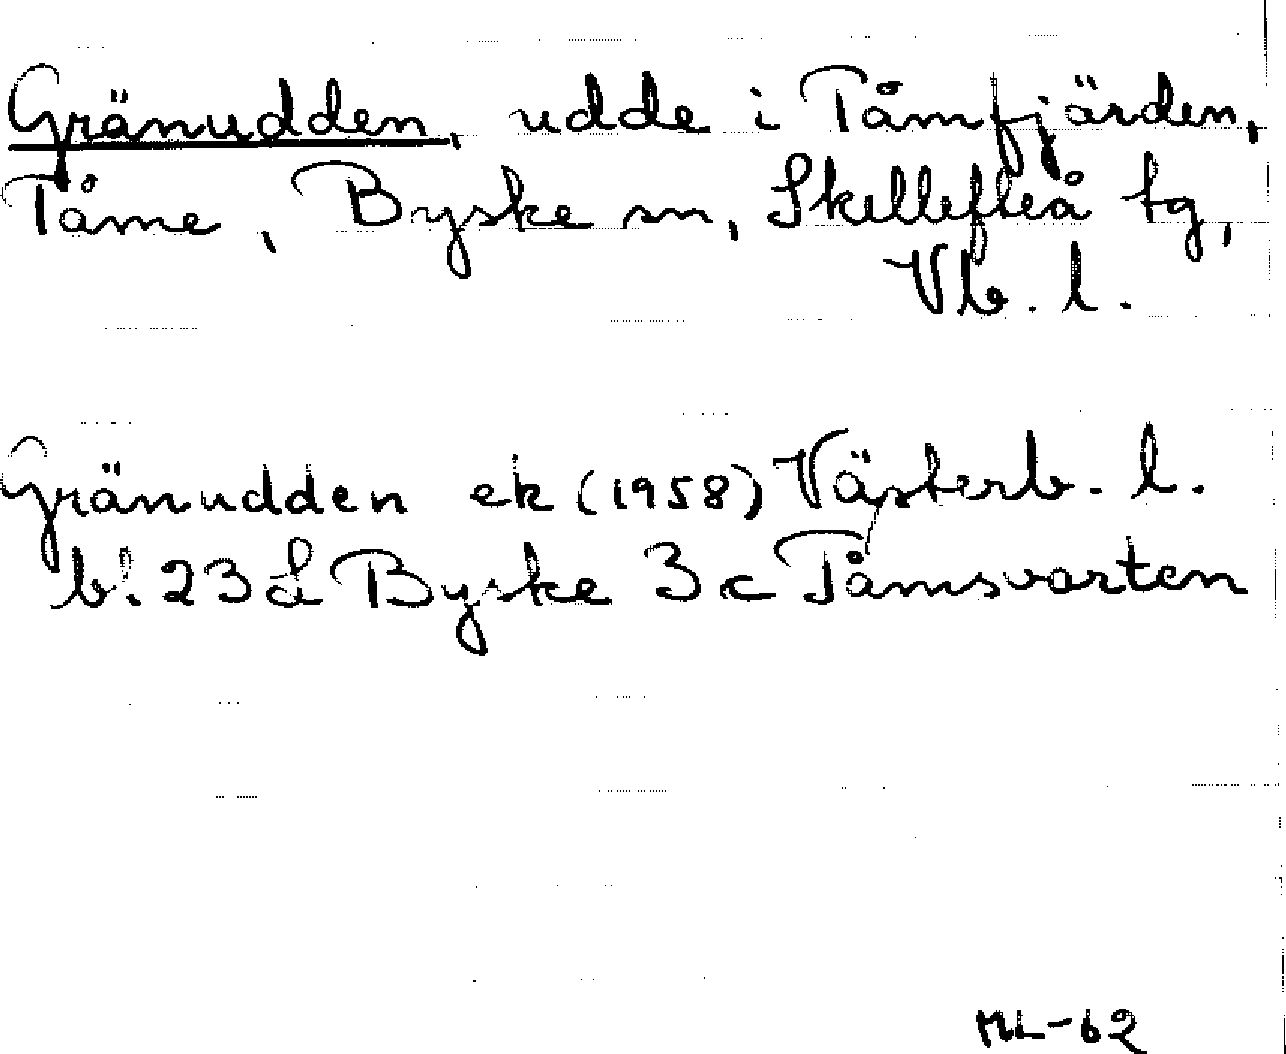 Gränudden, udde i Tåmfjärden,
Tåme, Byske sn, Skellefteå tg,
Vb. l.
Gränudden ek (1958) Västerb. l.
bl. 23 L Byske 3c Tåmsvarten
ML-62